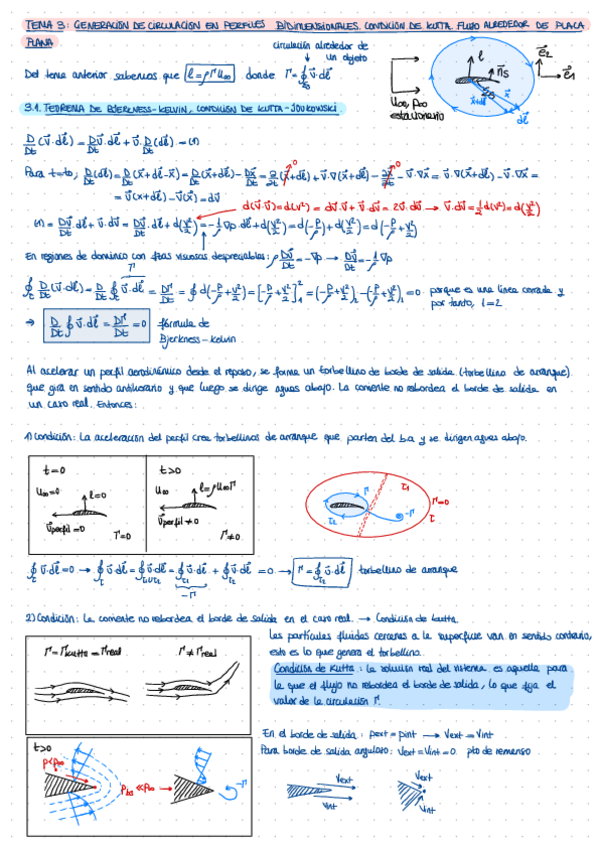 TEMA 3: GENERACIÓN DE CIRCULACIÓN EN PERFILES BIDIMENSIONALES. CONDICIÓN DE KUTTA. FLUJO ALREDEDOR DE PLACA
PLANA
circulación alrededor de
un objeto
Del tema anterior sabemos que l = ρΓu∞ donde Γ = ∮ v·dl
u∞, p∞
estacionario
3.1. TEOREMA DE BJERKNESS-KELVIN, CONDICIÓN DE KUTTA-JOUKOWSKI.
D/Dt (v·dl) = Dv/Dt·dl + v·D/Dt(dl) = (1)
Para t=t₀; D/Dt(dl) = D/Dt(x+dl-x) = D/Dt(x+dl) - Dx/Dt = ∂/∂t(x+dl) + v·∇(x+dl) - ∂x/∂t - v·∇x = v·∇(x+dl) - v·∇x =
= v(x+dl) - v(x) = dv
d(v·v) = d(v²) = dv·v + v·dv = 2v·dv → v·dv = ½d(v²) = d(v²/2)
(1) = Dv/Dt·dl + v·dv = Dv/Dt·dl + d(v²/2) = -1/ρ ∇p·dl + d(v²/2) = d(-p/ρ) + d(v²/2) = d(-p/ρ + v²/2)
En regiones de dominio con fzas viscosas despreciables: ρ Dv/Dt = -∇p → Dv/Dt = -1/ρ ∇p
∮ D/Dt(v·dl) = D/Dt ∮ v·dl = DΓ/Dt = ∮ d(-p/ρ + v²/2) = [-p/ρ + v²/2]₁² = (-p/ρ + v²/2)₂ - (-p/ρ + v²/2)₁ = 0 porque es una línea cerrada y
por tanto, 1=2
→ D/Dt ∮ v·dl = DΓ/Dt = 0 fórmula de
Bjerkness-Kelvin
Al acelerar un perfil aerodinámico desde el reposo, se forma un torbellino de borde de salida (torbellino de arranque)
que gira en sentido antihorario y que luego se dirige aguas abajo. La corriente no rebordea el borde de salida en
un caso real. Entonces:
1) Condición: La aceleración del perfil crea torbellinos de arranque que parten del b.a y se dirigen aguas abajo.
t=0
t>0
u∞=0
l=0
u∞
l=ρu∞Γ
v perfil = 0
Γ=0
v perfil ≠ 0
Γ≠0
Γ=0
-Γ
∮ v·dl = 0 → ∮ v·dl = ∮ v·dl = ∮ v·dl + ∮ v·dl = 0 → Γ = ∮ v·dl torbellino de arranque
-Γ
2) Condición: La corriente no rebordea el borde de salida en el caso real. → Condición de kutta.
Γ = Γkutta = Γreal
Γ ≠ Γreal
Las partículas fluidas cercanas a la superficie van en sentido contrario,
esto es lo que genera el torbellino.
Condición de Kutta: la solución real del sistema es aquella para
la que el flujo no rebordea el borde de salida, lo que fija el
valor de la circulación Γ.
En el borde de salida: pext = pint → Vext = Vint
Para borde de salida anguloso: Vext = Vint = 0 pto de remanso
t>0
p<p∞
pbs << p∞
-Γ
Vext
Vint
Vext
Vint